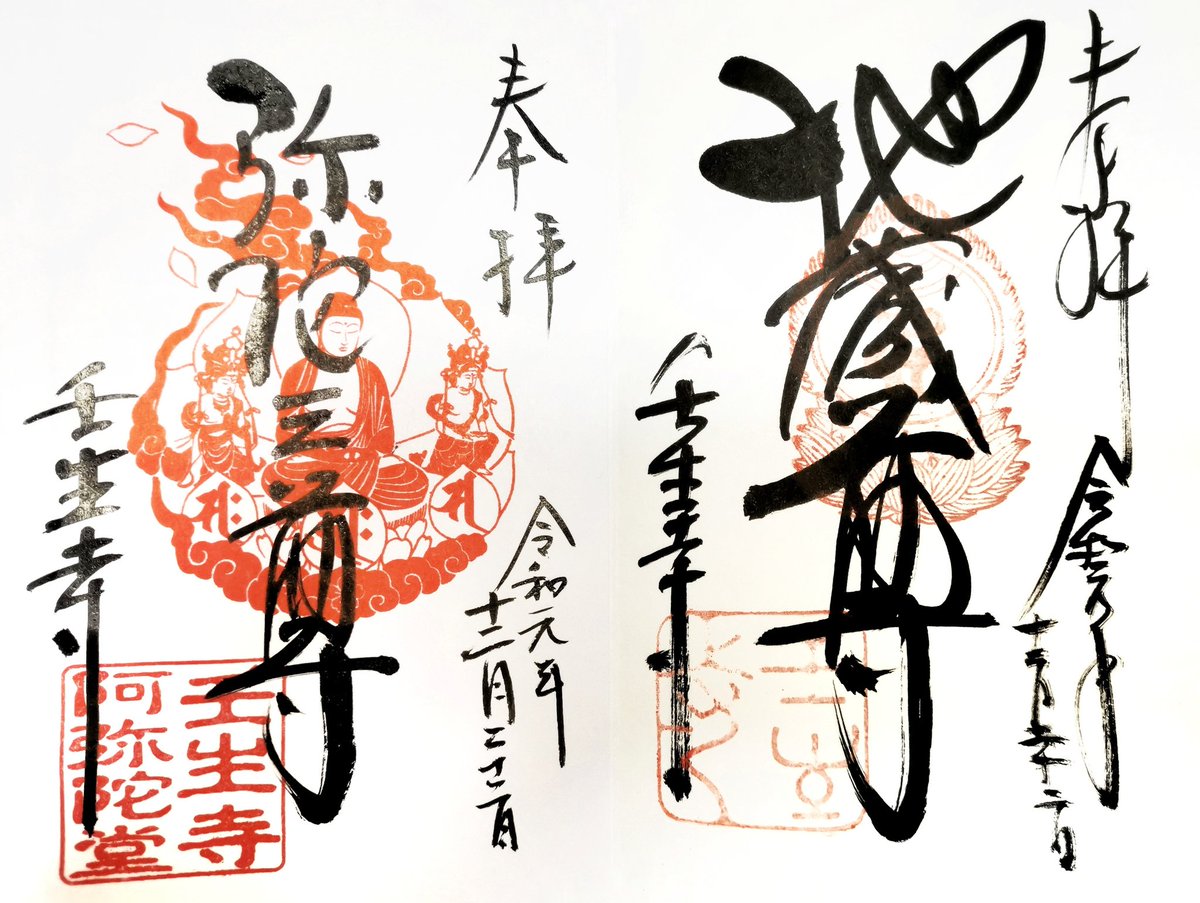 奉拝
令和元年
十二月二十二日
地蔵尊
壬生寺
奉拝
令和元年
十二月二十二日
弥陀三尊
壬生寺
壬生寺
阿弥陀堂